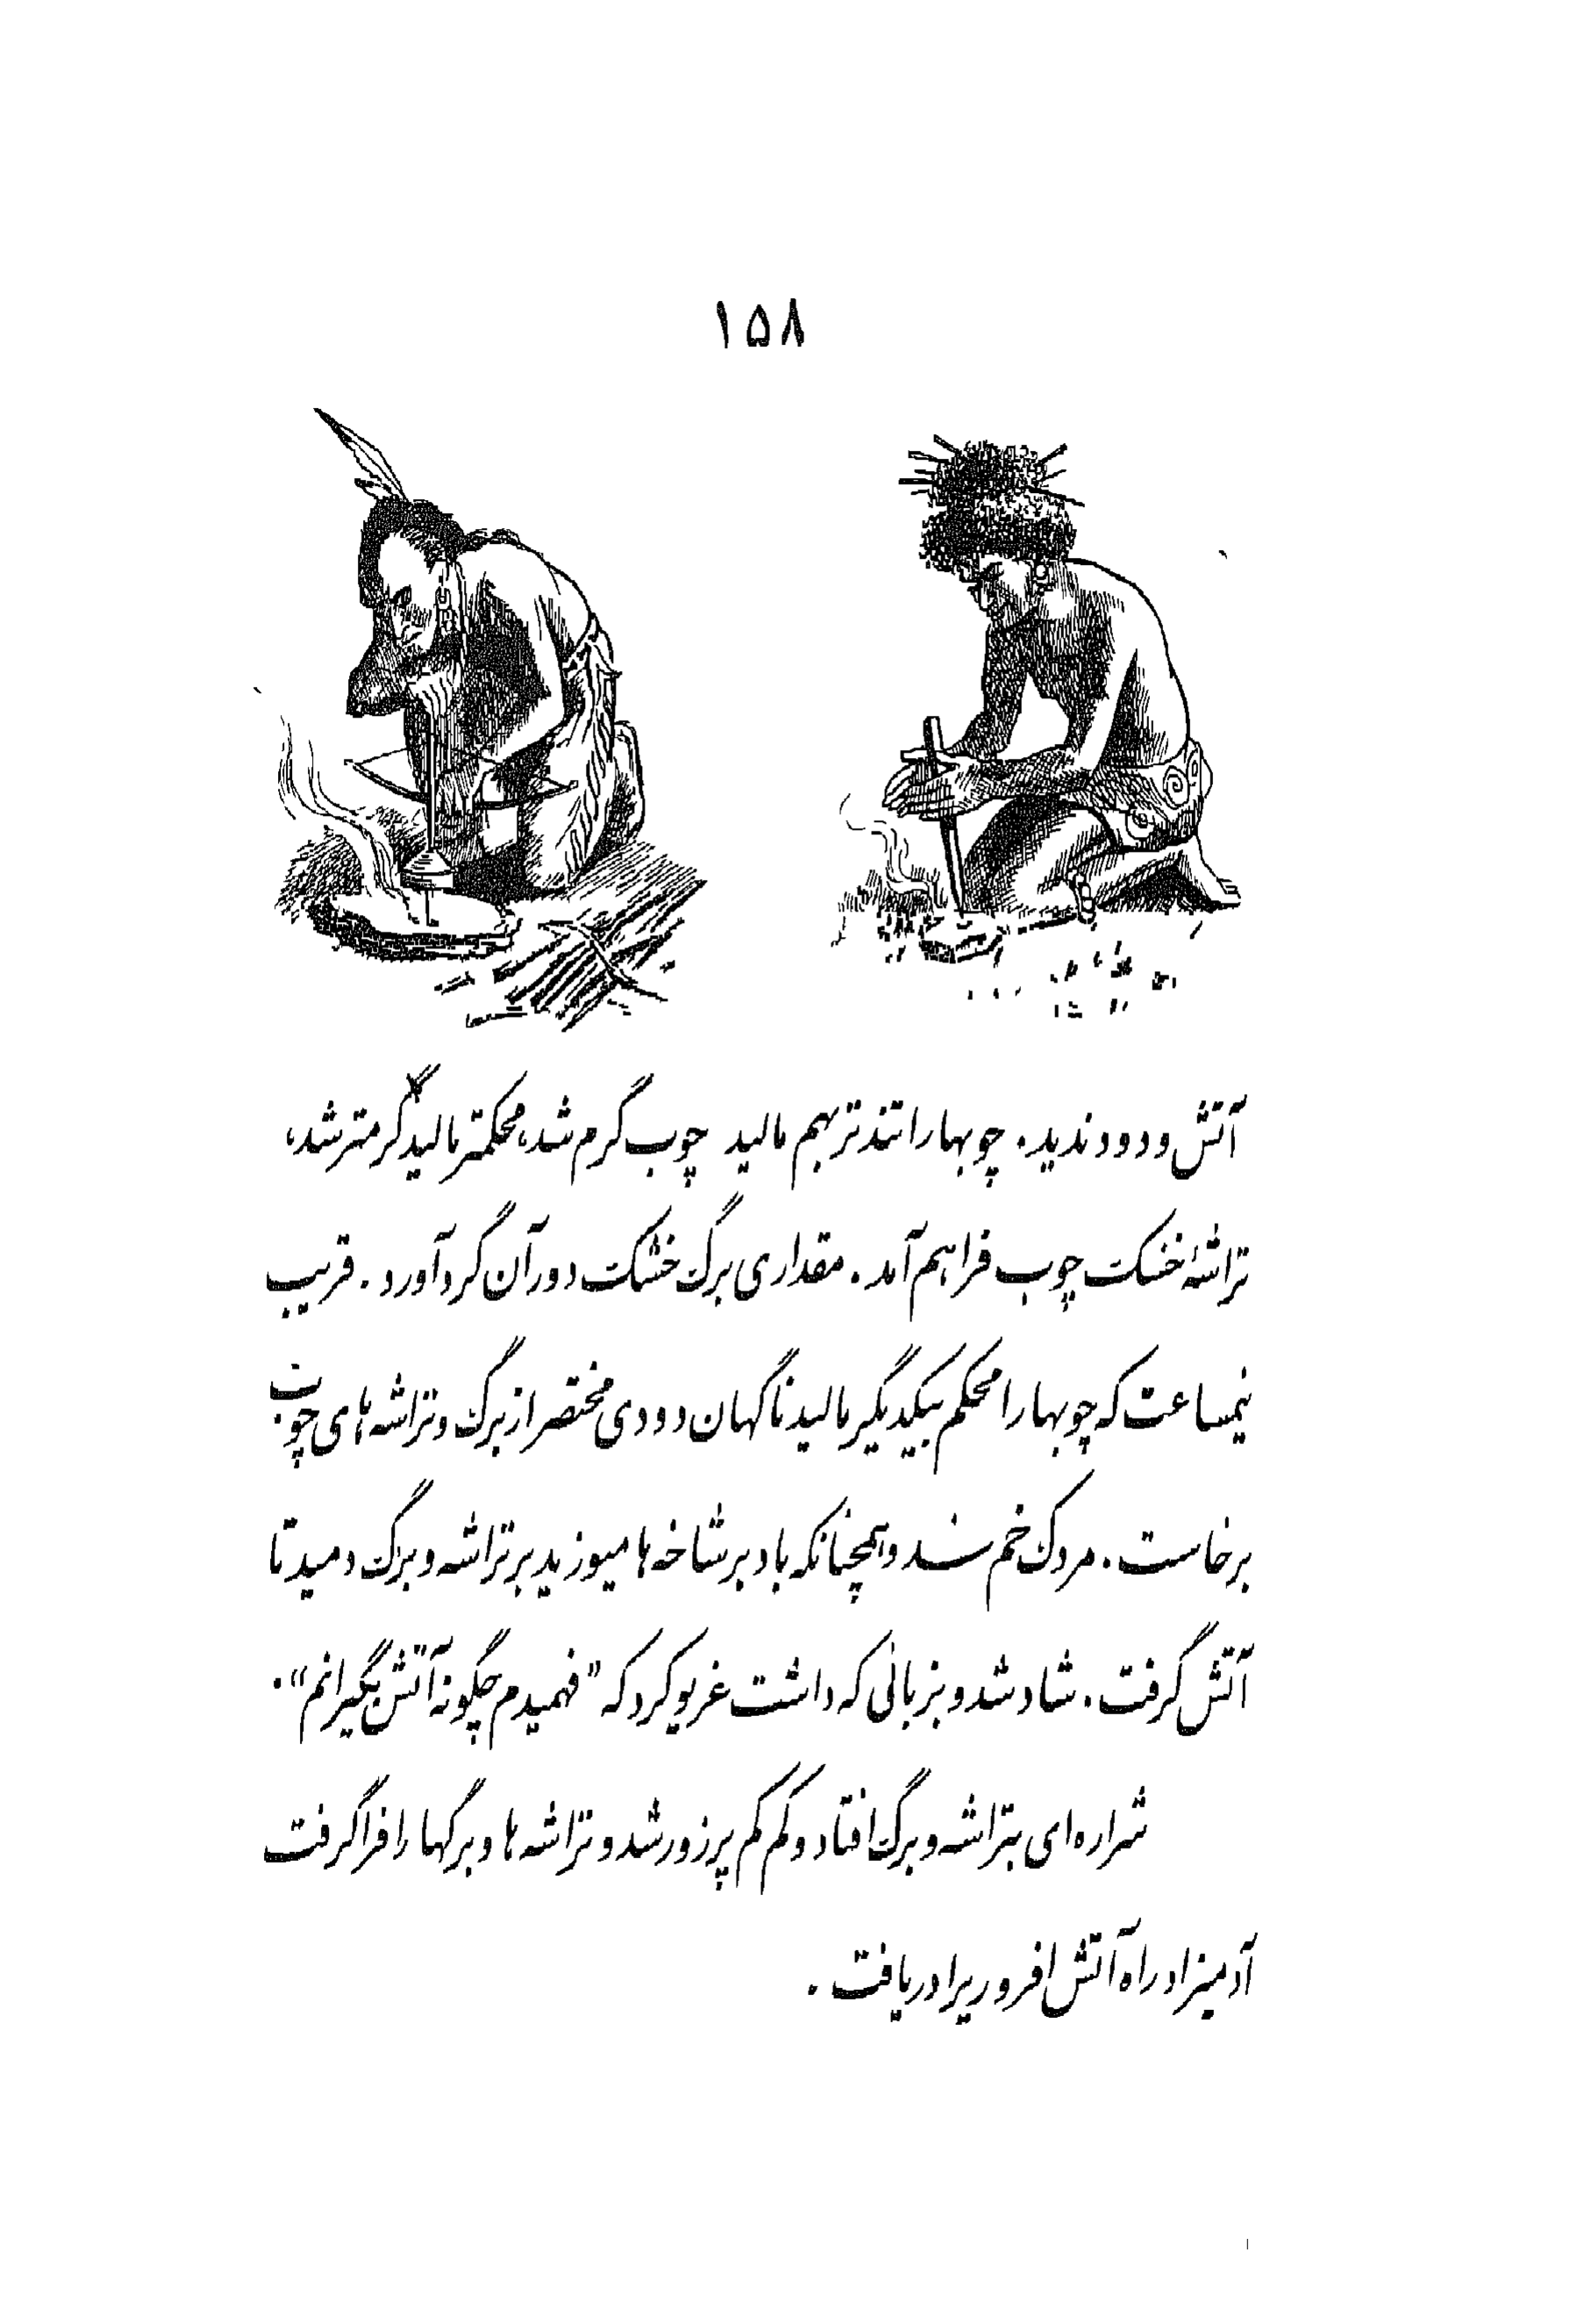 ۱۵۸
آتش و دود ندید. چوبها را تندتر بهم مالید چوب گرم شد، محکمتر مالید گرمتر شد،
تراشهٔ خشک چوب فراهم آمد. مقداری برگ خشک دور آن گرد آورد. قریب
نیمساعت که چوبها را محکم بیکدیگر مالید ناگهان دودی مختصر از برگ و تراشه های چوب
برخاست. مردک خم شد و همچنانکه باد بر شاخه ها میوزید بر تراشه و برگ دمید تا
آتش گرفت. شاد شد و بزبانی که داشت غریو کرد که "فهمیدم چگونه آتش بگیرانم".
شراره ای بتراشه و برگ افتاد و کم کم پرزور شد و تراشه ها و برگها را فرا گرفت
آدمیزاد راه آتش افروزیرا دریافت.